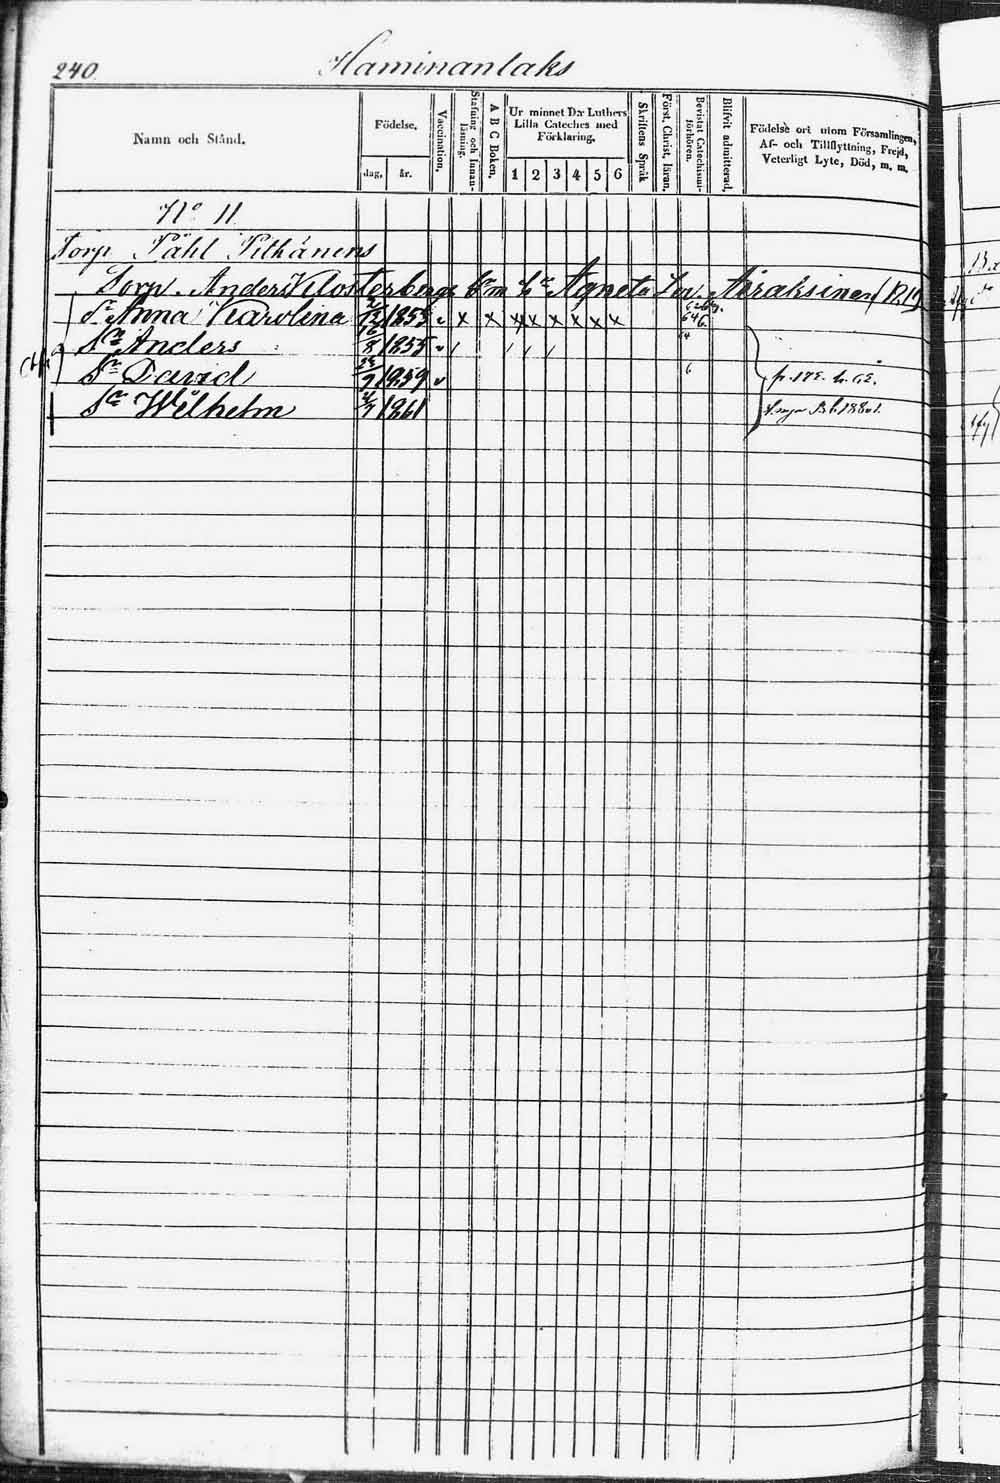 240. Haminanlaks
Namn och Stånd.
Födelse,
dag, år.
Vaccination.
Stafning och Innanläsning.
A B C Boken.
Ur minnet D:r Luthers Lilla Cateches med Förklaring,
1 2 3 4 5 6
Skriftens Språk
Först. Christ. läran.
Bevistat Catechismiförhören.
Blifvit admitterad.
Födelse ort utom Församlingen, Af- och Tillflyttning, Frejd, Veterligt Lyte, Död, m. m.
No 11
Torp Påhl Pitkänens
Torp. Anders Klosterbergs Agneta Airaksinen
Anna Karolina 1853 v x x x x x x x x
Anders 8 1855 v
David 9 1859 v p. 172.
Wilhelm 7 1861